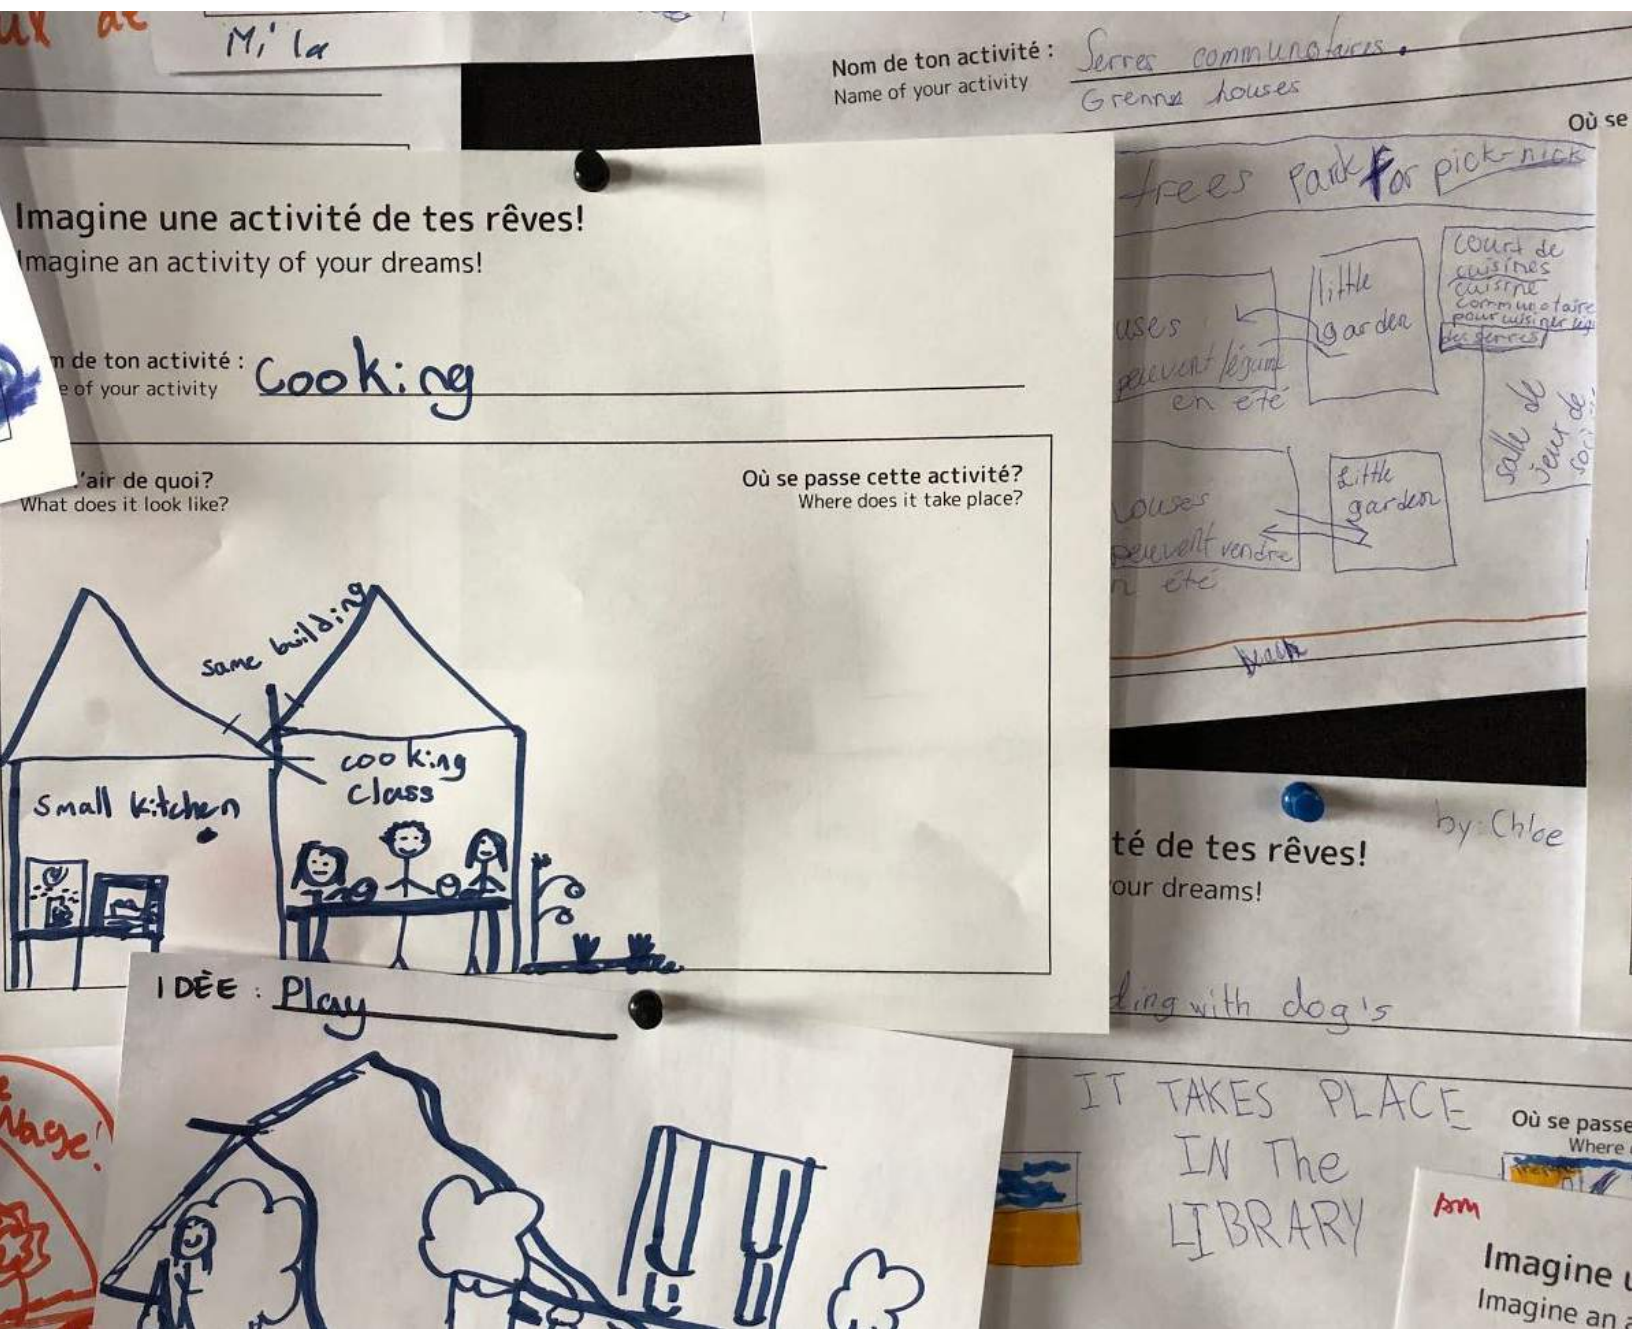 Mi'la
Nom de ton activité : Serres communotaires.
Name of your activity
Grenns houses
Où se
trees Park For pick-nick
Imagine une activité de tes rêves!
Imagine an activity of your dreams!
de ton activité : Cooking
of your activity
'air de quoi?
What does it look like?
Où se passe cette activité?
Where does it take place?
same building
small kitchen
cooking
class
little
garden
uses
peuvent légume
en été
court de
cuisines
cuisine
communotaire
pour cuisiner
des serres
salle de
jeux de
soci
Little
garden
ouses
peuvent vendre
n été
by: Chloe
té de tes rêves!
our dreams!
ding with dog's
IDÈE : Play
IT TAKES PLACE
IN The
LIBRARY
Où se passe
Where
Nage!
Imagine u
Imagine an a